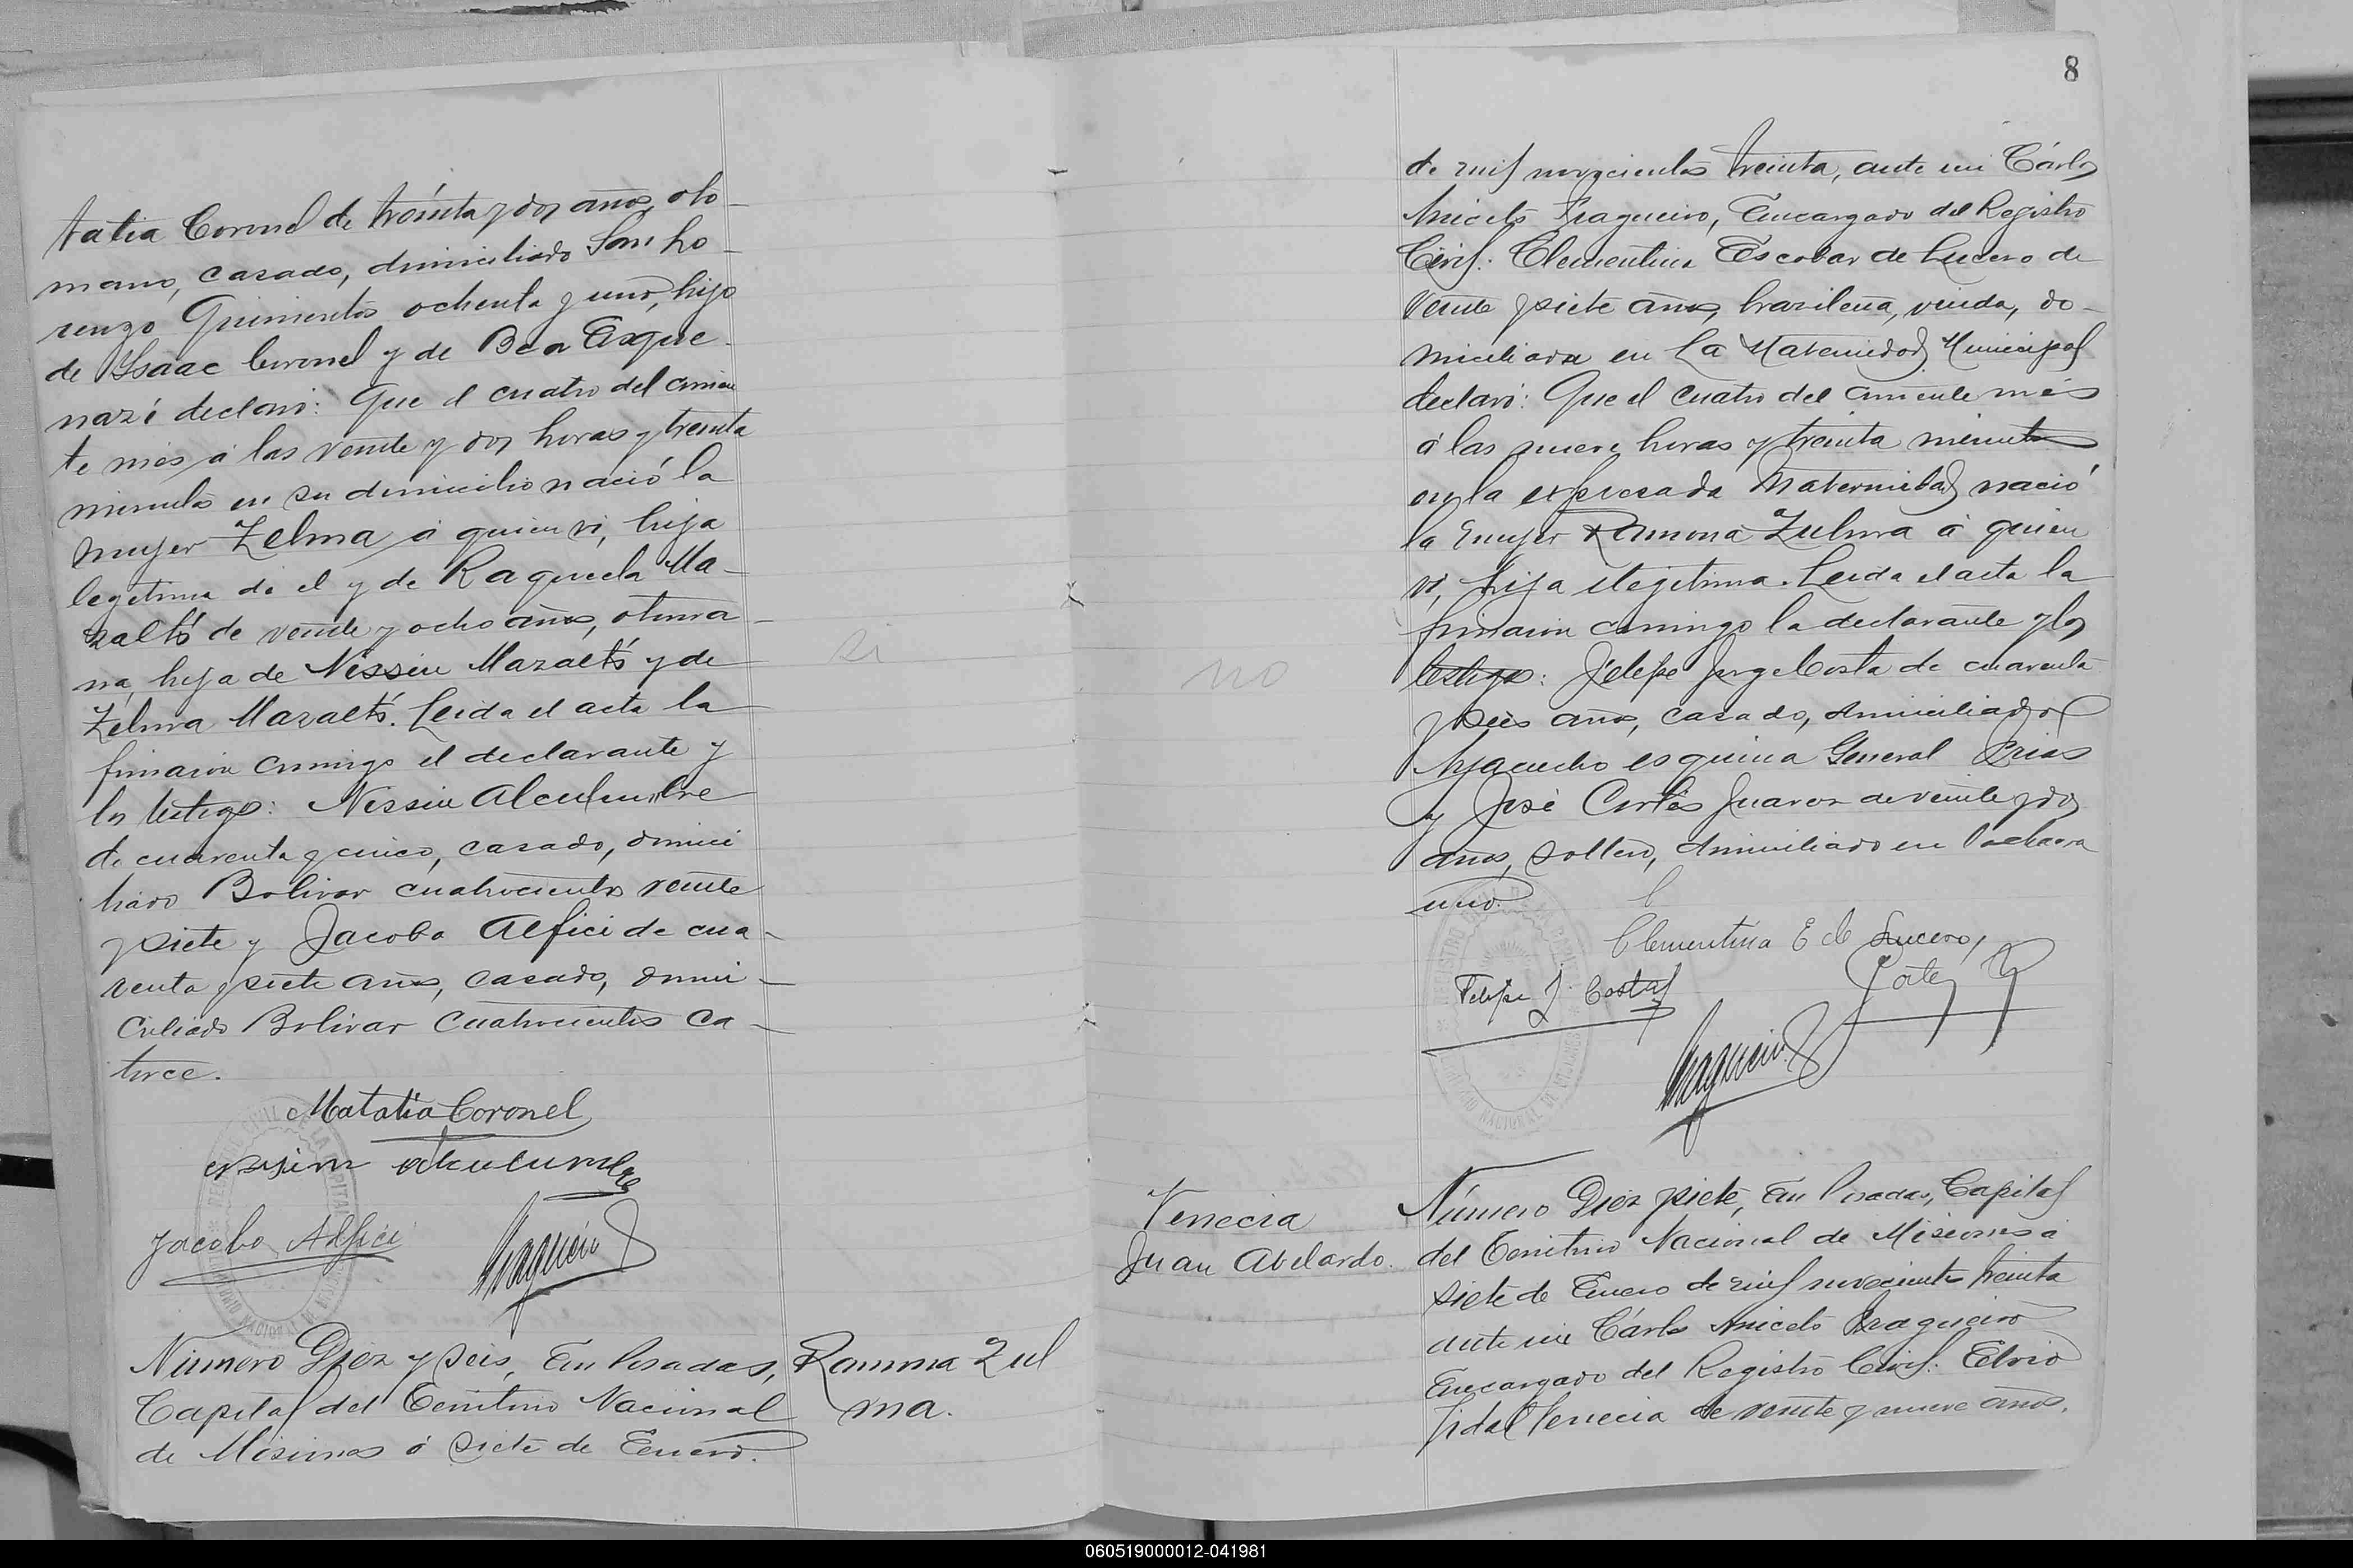 tatia Coronel de treinta y dos años, oto-
mano, casado, domiciliado San Lo-
renzo Quinientos ochenta y uno, hijo
de Ysaac Coronel y de Bea Exque-
nazí declaró: Que el cuatro del corrien
te mes á las veinte y dos horas y treinta
minutos en su domicilio nació la
mujer Zelma á quien ví, hija
legítima de el y de Raquela Ma-
zaltó de veinte y ocho años, otoma-
na, hija de Nissin Mazaltó y de
Zelma Mazaltó. Leida el acta la
firmaron conmigo el declarante y
los testigos: Nessin Alculumbre
de cuarenta y cinco, casado, domici
liado Bolivar cuatrocientos veinte
y siete y Jacobo Alfici de cua-
renta y siete años, casado, domi-
ciliado Bolivar Cuatrocientos ca-
torce.
si
Matatia Coronel
Nissim Alculumbre
Jacobo Alfici
Fragueiro
Número Diez y seis, En Posadas,
Capital del Territorio Nacional
de Misiones á siete de Enero
Ramona Zul
ma.
8
de mil novecientos treinta, ante mi Cárlos
Aniceto Fragueiro, Encargado del Registro
Civil: Clementina Escobar de Lucero de
veinte y siete años, brazileña, viuda, do-
miciliada en La Maternidad Municipal
declaró: Que el cuatro del corriente mes
á las nueve horas y treinta minutos
en la expresada Maternidad nació
la mujer Ramona Zulma á quien
ví, hija ilegítima. Leida el acta la
firmaron conmigo la declarante y los
testigos: Felipe Jorge Costa de cuarenta
y seis años, casado, domiciliado
Ayacucho esquina General Rias
y José Cortés Juarez de veinte y dos
años, soltero, domiciliado en
uno.
no
Clementina E de Lucero
Felipe J. Costa
Cortes
Fragueiro
Venecia
Juan Abelardo.
Número Diez y siete, En Posadas, Capital
del Territorio Nacional de Misiones á
siete de Enero de mil novecientos treinta
ante mi Cárlos Aniceto Fragueiro
Encargado del Registro Civil: Elvio
Fidal Venecia de veinte y nueve años,
060519000012-041981